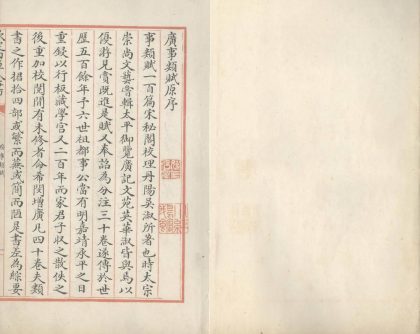 廣事類賦原序
事類賦一百篇宋秘閣校理丹陽吳淑所著也時太宗
崇尚文藝嘗輯太平御覽廣記文苑英華淑皆與焉以
優游見賞既進是賦又奉詔為分注三十卷遂傳於世
歷五百餘年予六世祖都事公當有明嘉靖承平之日
重鋟以行板藏學宮又二百年而家君子収之散佚之
後重加校閱間有未修者命希閔增廣凡四十卷夫類
書之作捃拾四部或繁而蕪或簡而陋是書差為綜要